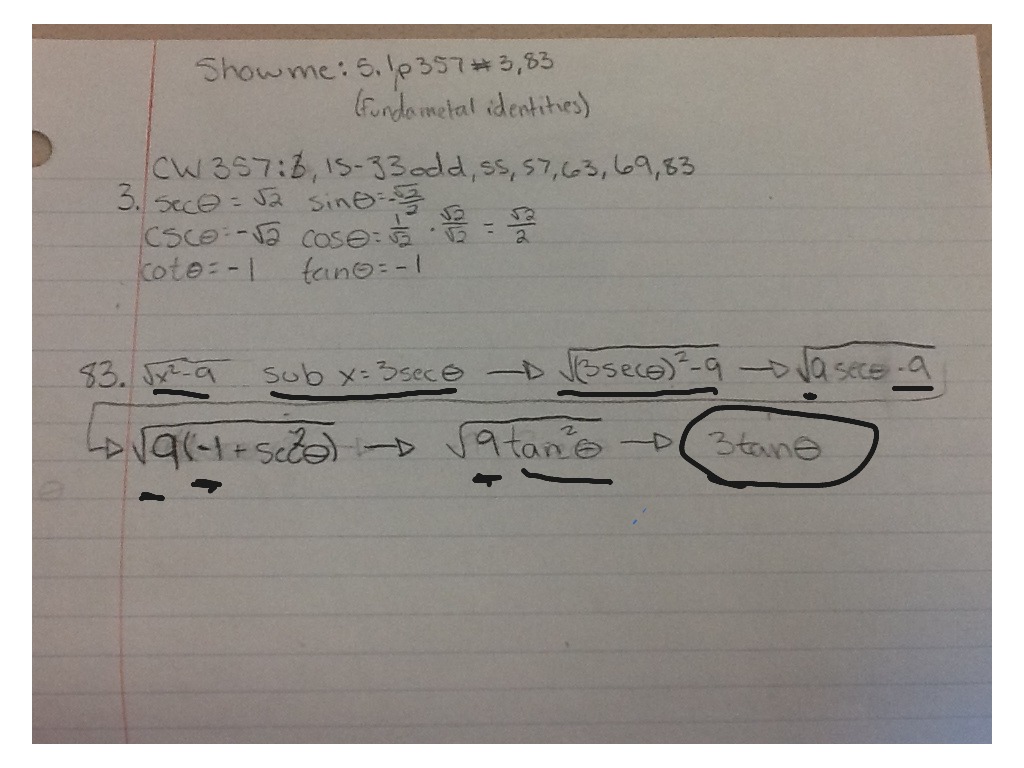 Show me: 5.1 p357 # 3,83
(fundametal identities)
CW 357: 3, 15-33 odd, 55, 57, 63, 69, 83
3. secθ = √2 sinθ = -√2/2
cscθ = -√2 cosθ = 1/√2 · √2/√2 = √2/2
cotθ = -1 tanθ = -1
83. √x²-9 sub x = 3secθ → √(3secθ)²-9 → √9secθ-9
→ √9(-1+sec²θ) → √9tan²θ → 3tanθ